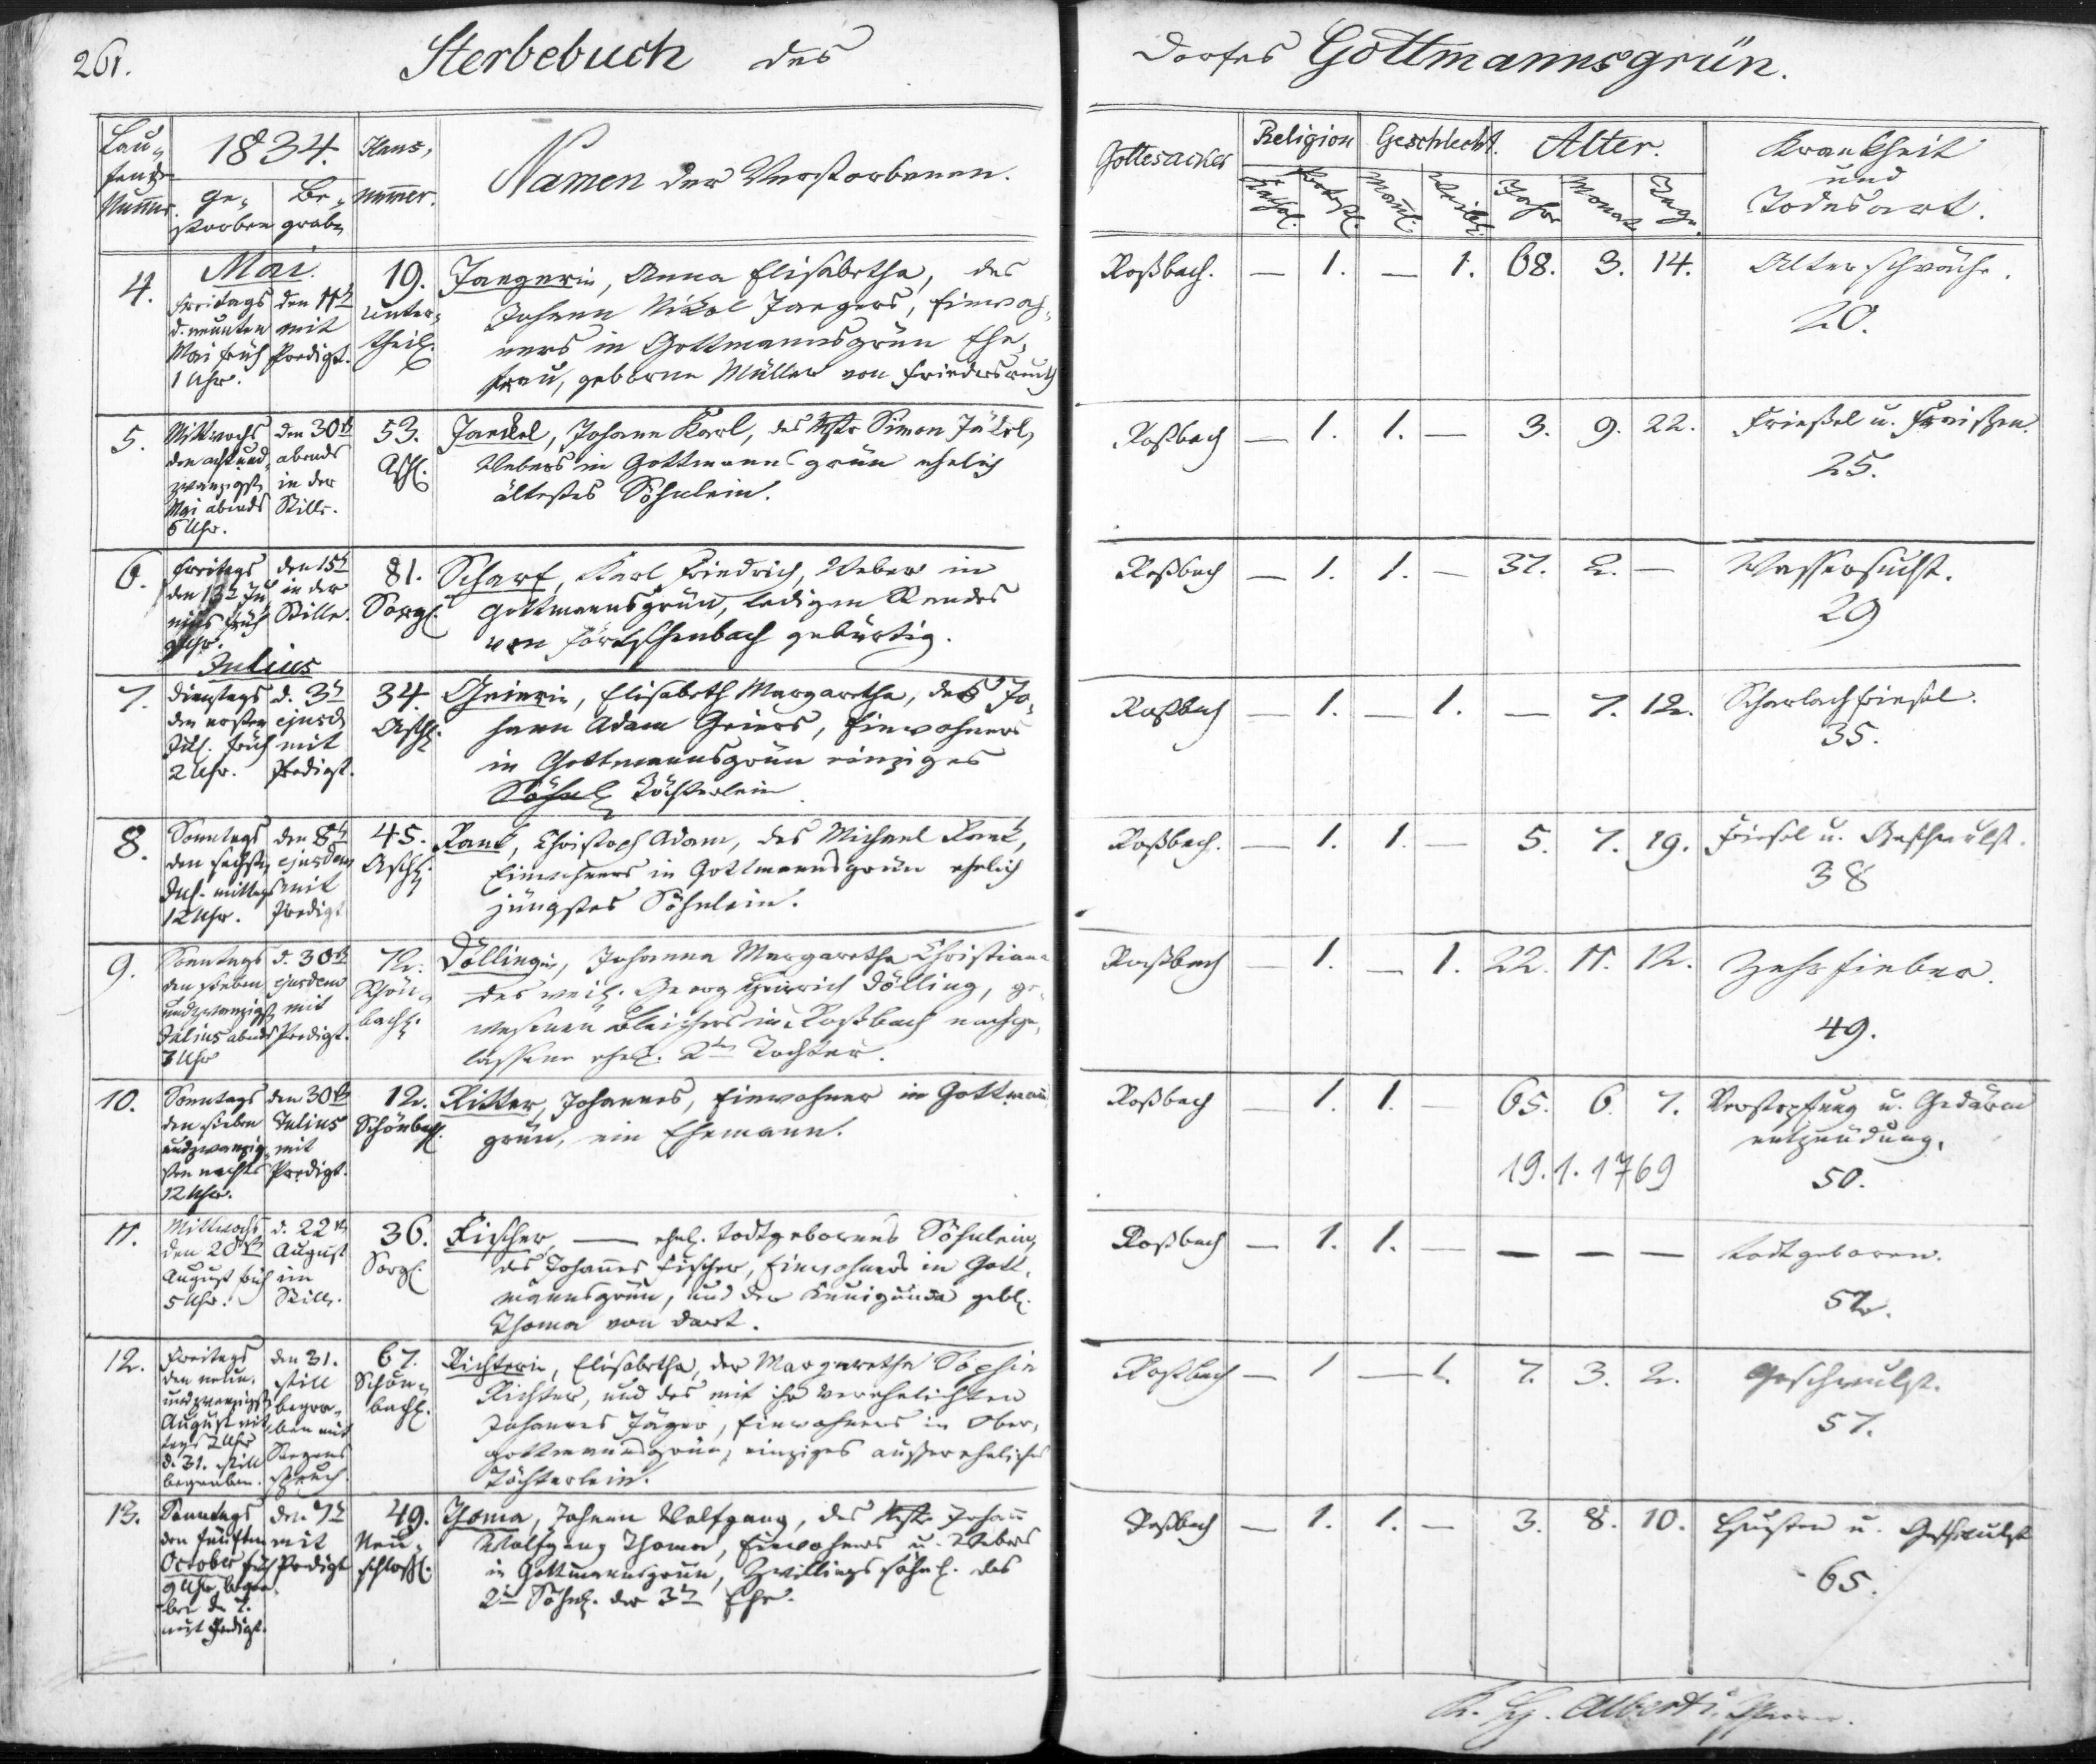 261.
Sterbebuch des
Dorfes Gottmannsgrün.
Lau-
fende
Num̄er.
1834.
Ge-
storben
Be-
graben
Haus-
num̄er.
Namen der Verstorbenen.
Gottesacker
Religion
Kathol.
Protest.
Geschlecht.
Mañl.
Weibl.
Alter.
Jahr
Monat
Tage.
Krankheit
und
Todesart.
4.
Mai.
Freitags
d. neunten
Mai früh
1 Uhr.
den 11t
mit
Predigt.
19.
Unter-
theil.
Jaegerin, Anna Elisabetha, des
Johann Nikol Jaegers, Einwoh-
ners in Gottmannsgrün Ehe-
frau, geborne Müller von Friedersreuth
Roßbach. — 1. — 1. 68. 3. 14.
Altersschwäche.
20.
5.
Mittwochs
den achtund-
zwanzigst
Mai abends
5 Uhr.
den 30t
abends
in der
Stille.
53.
Asch.
Jaeckel, Johann Karl, des Mstr Simon Jäkel,
Webers in Gottmannsgrün ehelich
ältestes Söhnlein.
Roßbach — 1. 1. — 3. 9. 22.
Frießel u. Fraisen.
25.
6.
Freitags
den 13t Ju-
nius früh
9 Uhr.
den 15t
in der
Stille.
81.
Sorg.
Scharf, Karl Friedrich, Weber in
Gottmannsgrün, ledigen Standes
von gebürtig.
Roßbach — 1. 1. — 37. 2. —
Wassersucht.
29
Julius
7.
Dienstags
den ersten
Jul. früh
2 Uhr.
d. 3t
ejusd
mit
Predigt.
34.
Asch.
Geierin, Elisabeth Margaretha, des Jo-
hann Adam Geiers, Einwohners
in Gottmannsgrün einziges
Söhnl Töchterlein.
Roßbach — 1. — 1. — 7. 12.
Scharlachfriesel.
35.
8.
Sonntags
den sechst
Jul. mittags
12 Uhr.
den 8t
ejusdem
mit
Predigt
45.
Asch.
Rank, Christoph Adam, des Michael Rank,
Einwohners in Gottmannsgrün ehelich
jüngstes Söhnlein.
Roßbach. — 1. 1. — 5. 7. 19.
Friesel u. Geschwulst.
38
9.
Sonntags
den sieben
undzwanzigst
Julius abends
7 Uhr
d. 30t
ejusdem
mit
Predigt.
72.
Schön-
bach.
Döllingin, Johanna Margaretha Christiana
des weil. Georg Heinrich Dölling, ge-
wesenen Bleichers in Roßbach nachge-
lassene ehel. 2te Tochter.
Roßbach — 1. — 1. 22. 11. 12.
Zehrfieber.
49.
10.
Sonntags
den sieben
undzwanzig-
sten nachts
12 Uhr.
den 30t
Julius
mit
Predigt.
12.
Schönbach.
Ritter, Johannes, Einwohner in Gottmañs
grün, ein Ehemann.
Roßbach — 1. 1. — 65. 6. 7.
19.1.1769
Verstopfung u. Gedärm
entzündung.
50.
11.
Mittwochs
den 20st
August früh
5 Uhr.
d. 22t
August
im
Still.
36.
Sorg.
Fischer, — ehel. todtgebornes Söhnlein
des Johannes Fischer, Einwohners in Gott-
mannsgrün, und der Kunigunda gebl.
Thoma von dort.
Roßbach — 1. 1. — — — —
todtgeboren.
52.
12.
Freitags
den neun-
undzwanzigst
August mit-
tags 2 Uhr
d. 31. still
begraben.
den 31.
still
begra-
ben mit
Segens
spruch.
67.
Schön-
bach.
Richterin, Elisabetha, der Margaretha Sophia
Richter, und des mit ihr verehelichten
Johannes Jäger, Einwohners in Ober-
gottmannsgrün, einziges außereheliches
Töchterlein.
Roßbach — 1 — 1. 7. 3. 2.
Geschwulst.
57.
13.
Sonntags
den fünften
October früh
9 Uhr, begra-
ben d. 7.
mit Predigt.
den 7t
mit
Predigt
49.
Neu-
schloß.
Thoma, Johann Wolfgang, des Mstr. Johañ
Wolfgang Thoma, Einwohners u. Webers
in Gottmannsgrün, Zwillingssöhnl. des
2te Söhnl. der 3te Ehe.
Roßbach — 1. 1. — 3. 8. 10.
Husten u. Geschwulst
65.
Alberti, Pfarrer.